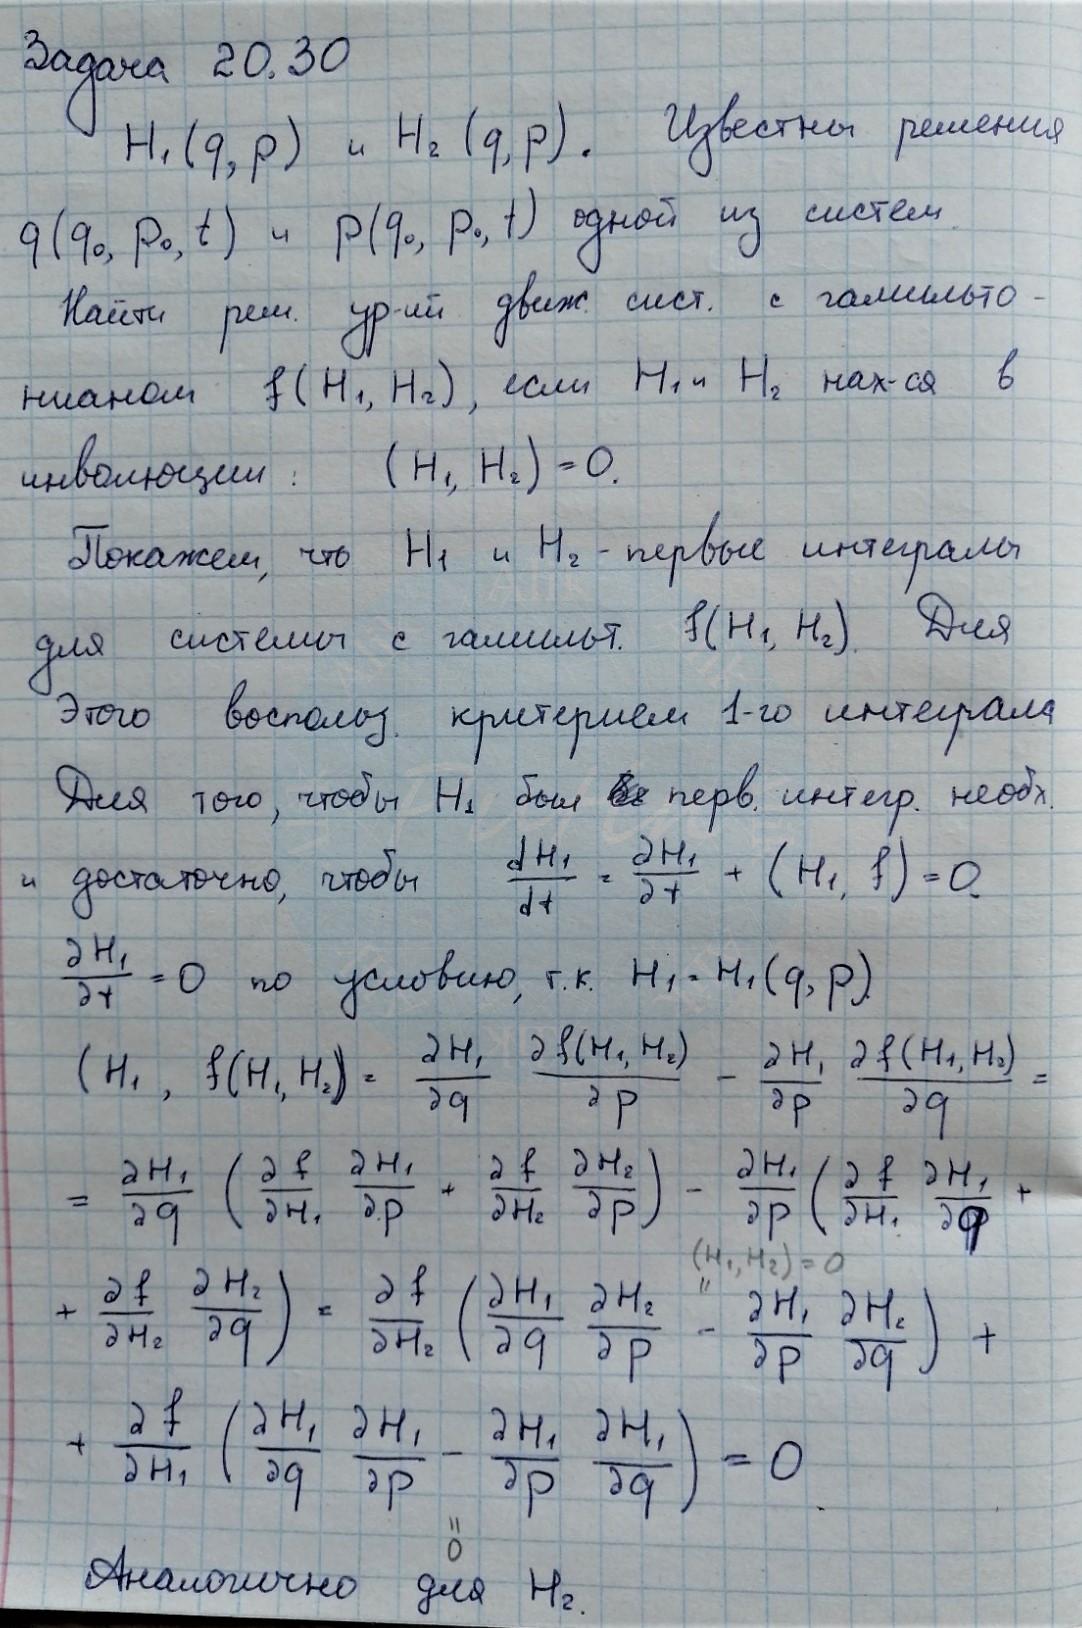 Задача 20.30
H₁(q,p) и H₂(q,p). Известны решения
q(q₀, p₀, t) и p(q₀, p₀, t) одной из систем.
Найти реш. ур-ий движ. сист. с гамильто-
нианом f(H₁, H₂), если H₁ и H₂ нах-ся в
инволюции: (H₁, H₂) = 0.
Покажем, что H₁ и H₂ - первые интегралы
для системы с гамильт. f(H₁, H₂). Для
этого воспольз. критерием 1-го интеграла
Для того, чтобы H₁ был перв. интегр. необх.
и достаточно, чтобы dH₁/dt = ∂H₁/∂t + (H₁, f) = 0.
∂H₁/∂t = 0 по условию, т.к. H₁ = H₁(q,p).
(H₁, f(H₁, H₂)) = ∂H₁/∂q ∂f(H₁,H₂)/∂p - ∂H₁/∂p ∂f(H₁,H₂)/∂q =
= ∂H₁/∂q (∂f/∂H₁ ∂H₁/∂p + ∂f/∂H₂ ∂H₂/∂p) - ∂H₁/∂p (∂f/∂H₁ ∂H₁/∂q +
(H₁, H₂) = 0
"
+ ∂f/∂H₂ ∂H₂/∂q) = ∂f/∂H₂ (∂H₁/∂q ∂H₂/∂p - ∂H₁/∂p ∂H₂/∂q) +
+ ∂f/∂H₁ (∂H₁/∂q ∂H₁/∂p - ∂H₁/∂p ∂H₁/∂q) = 0.
"
0
Аналогично для H₂.